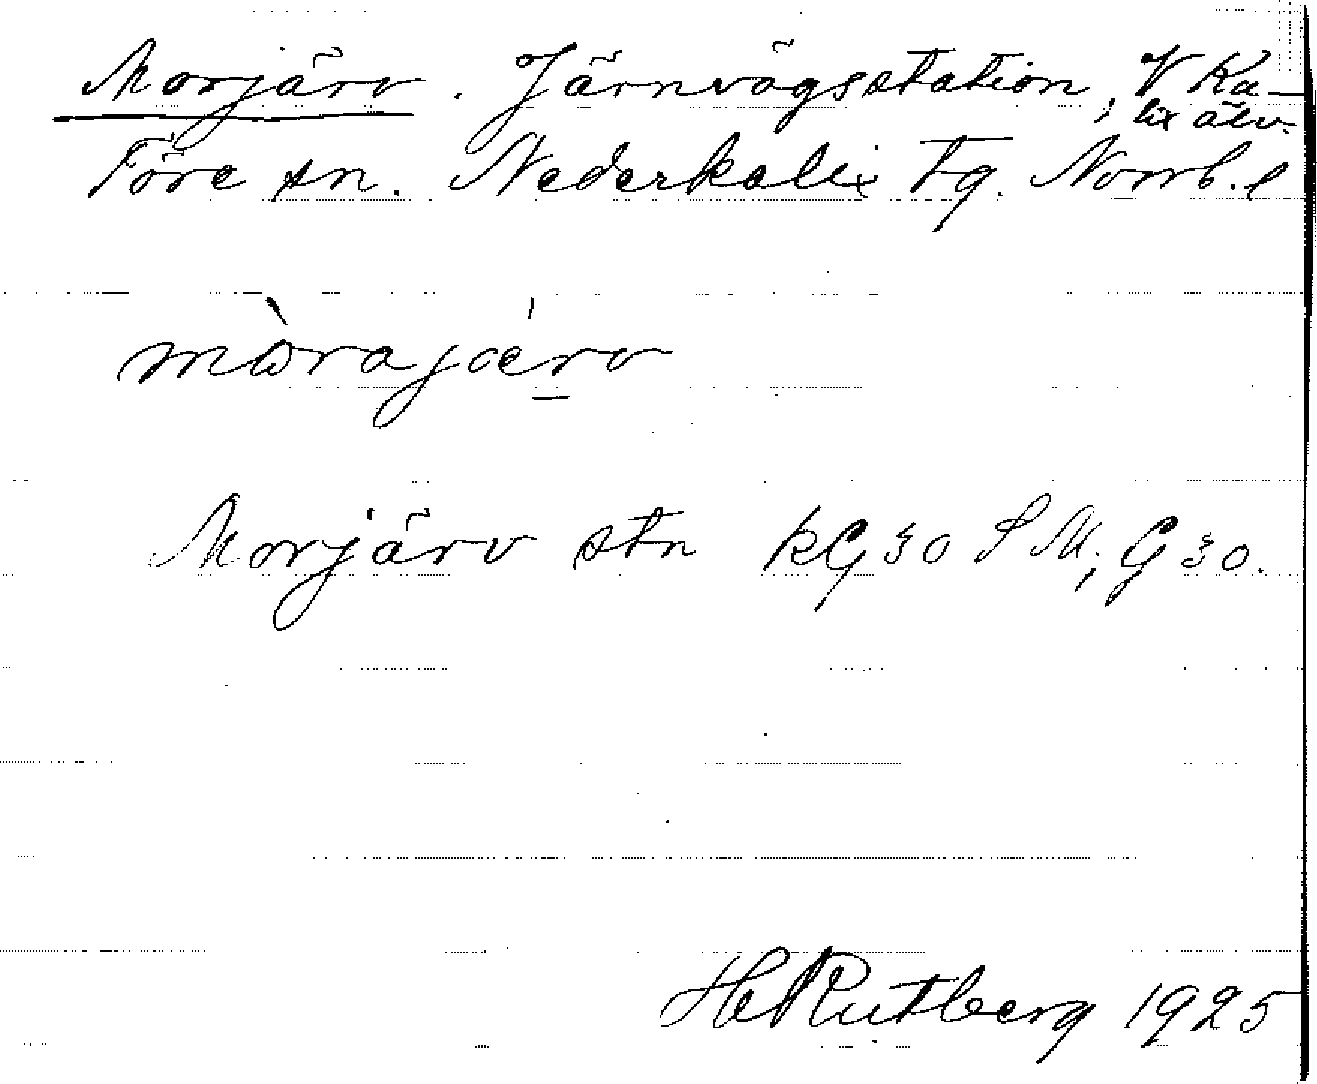 Morjärv. Järnvägsstation, V Ka-
lix älv.
Töre sn. Nederkalix tg. Norrb. l
mòrajǽrv
Morjärv stn kG30 SM; G30.
H Rutberg 1925